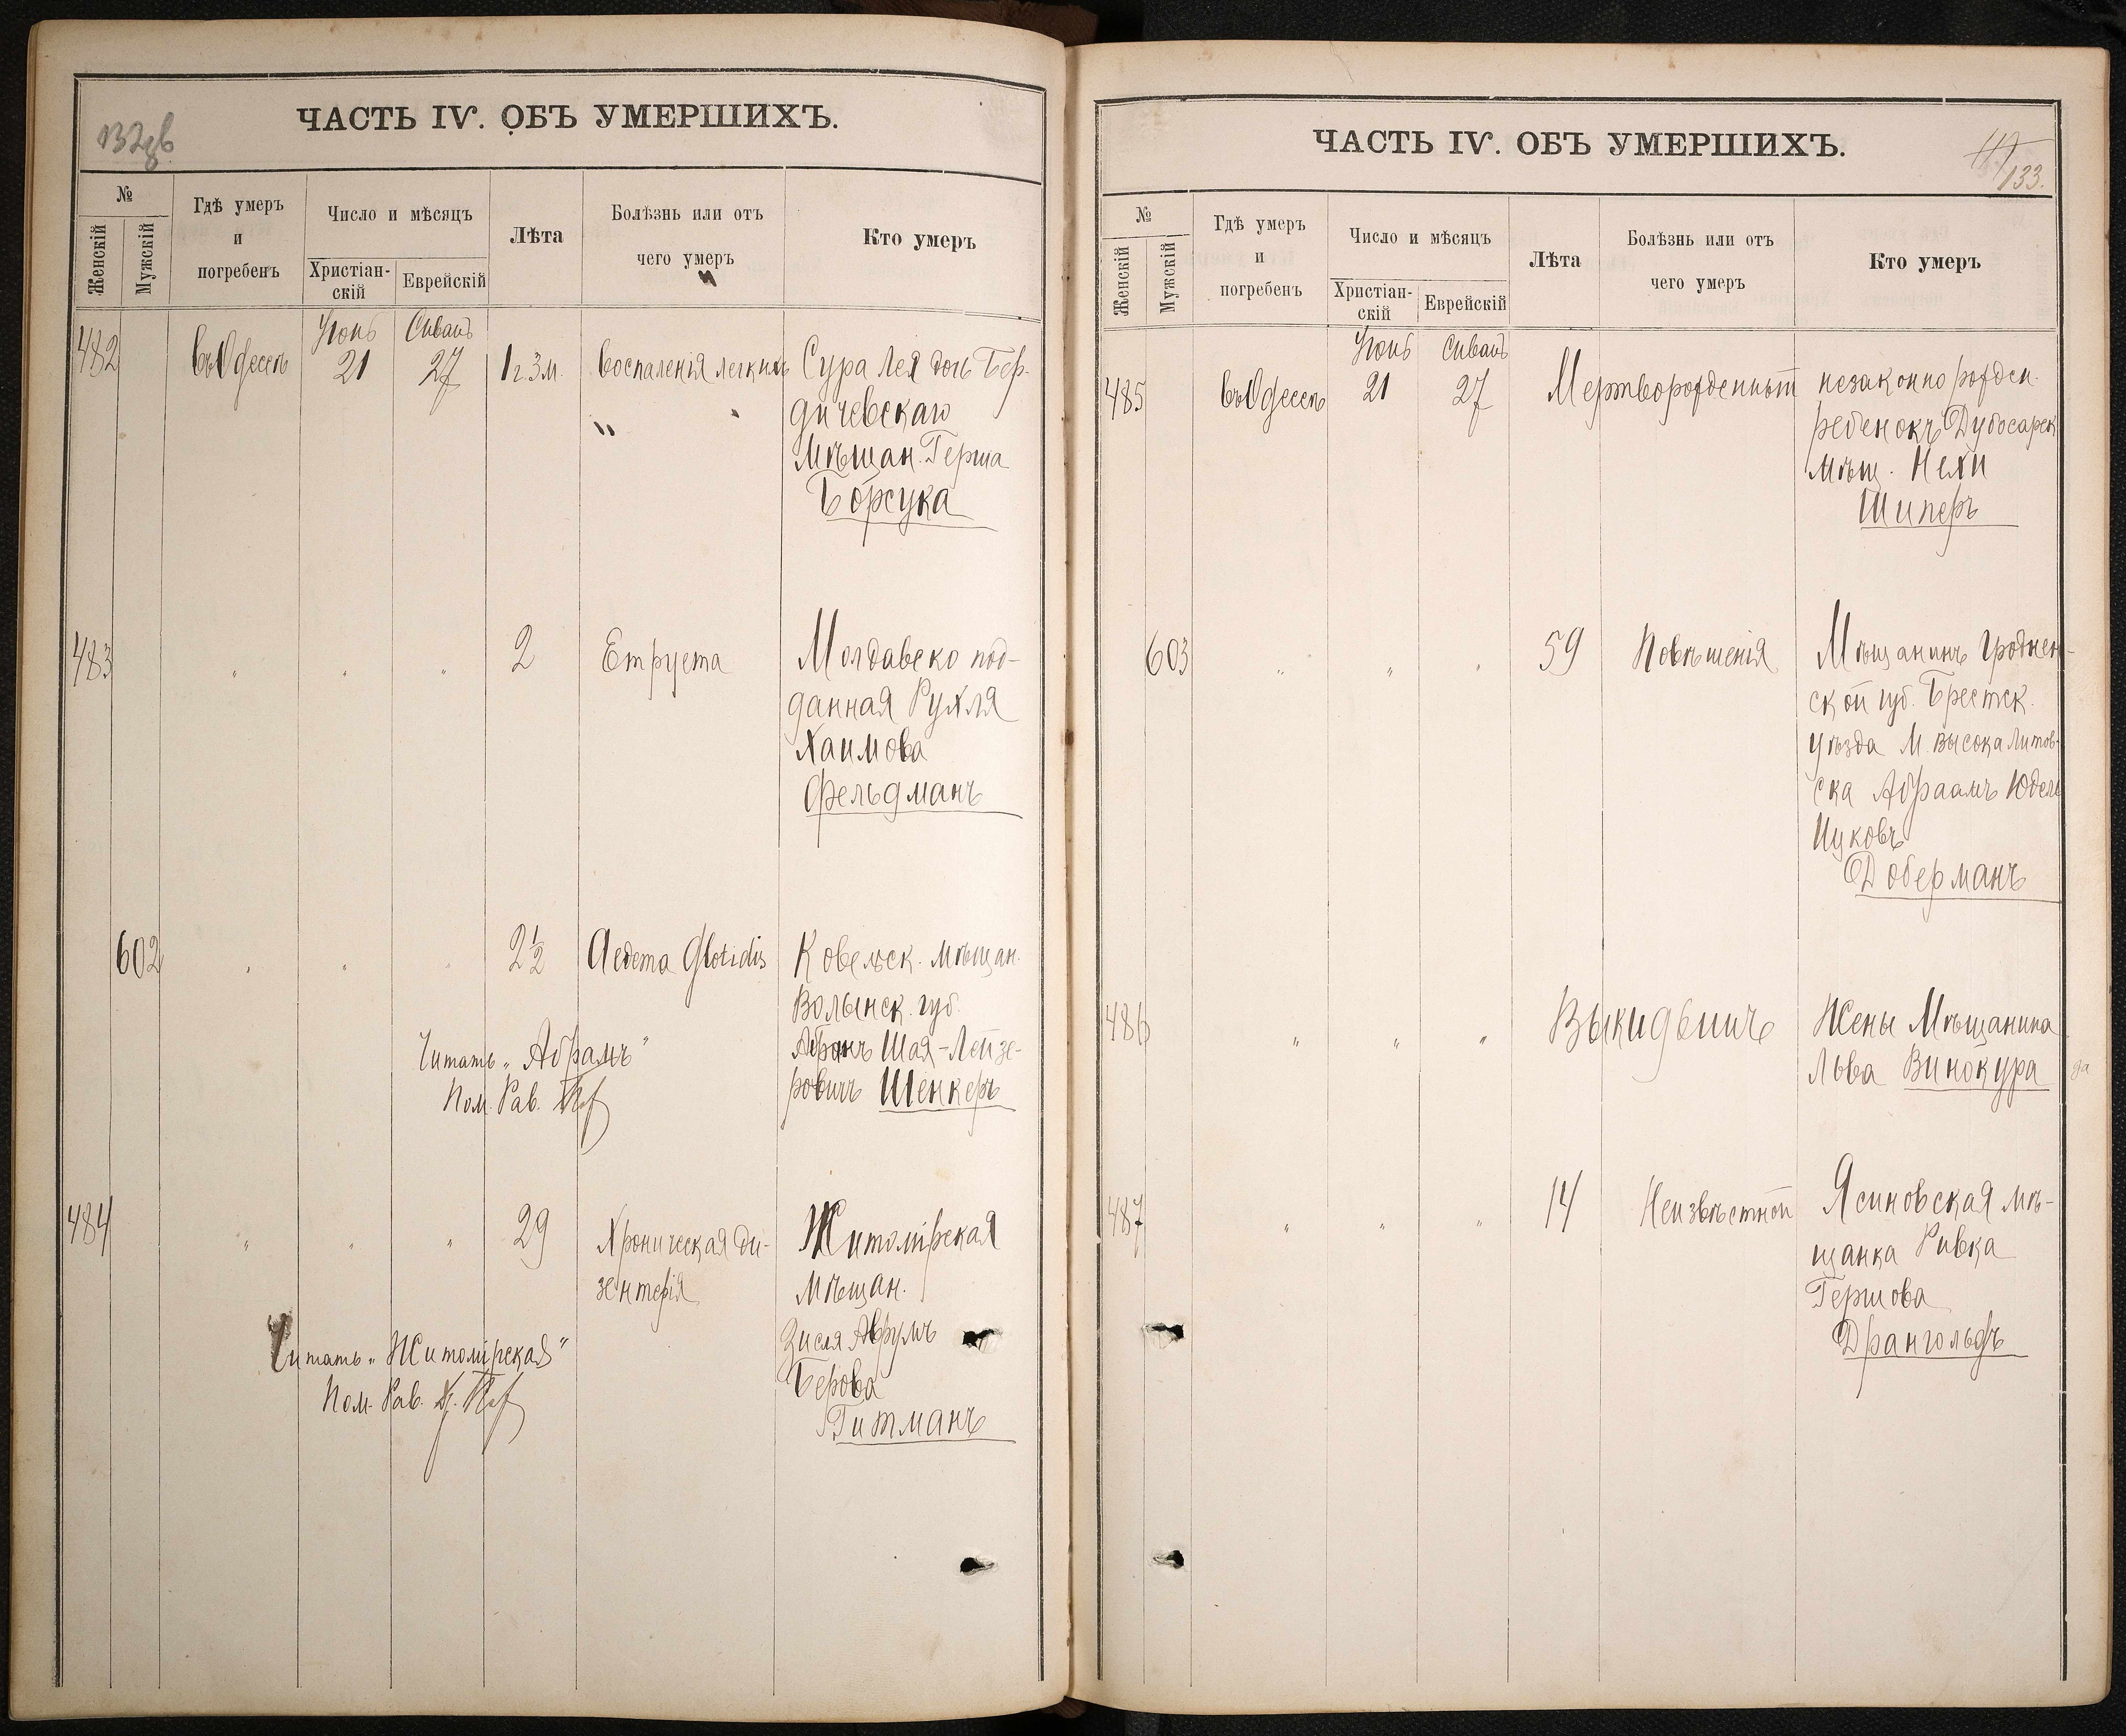 132об
ЧАСТЬ IV. ОБЪ УМЕРШИХЪ.
№
Женскій
Мужскій
Гдѣ умеръ
и
погребенъ
Число и мѣсяцъ
Христіан-
скій
Еврейскій
Лѣта
Болѣзнь или отъ
чего умеръ
Кто умеръ
Іюнь Сиванъ
482 въ Одессѣ 21 27 1 г. 3 м. Воспаленія легкихъ Сура Лея дочь Бер-
дичевскаго
Мѣщан. Герша
Борсука
483 " " " 2 Молдавско под-
данная Рухля
Хаимова
Фельдманъ
602 " " " 2½ Aedema Glotidis Ковельск. мѣщан.
Волынск. губ.
Шая-Лейзе-
Читать „Абрамъ"
ровичъ Шенкеръ
Пом. Рав.
484 " " " 29 Хроническая ди- Житомірская
зентерія Мѣщан.
Зисля Аврумъ
Читать „Житомірская"
Берова
Пом. Рав.
Гитманъ
ЧАСТЬ IV. ОБЪ УМЕРШИХЪ.
133.
№
Женскій
Мужскій
Гдѣ умеръ
и
погребенъ
Число и мѣсяцъ
Христіан-
скій
Еврейскій
Лѣта
Болѣзнь или отъ
чего умеръ
Кто умеръ
Іюнь Сиванъ
485 въ Одессѣ 21 27 Мертворожденный незаконно рожден.
ребенокъ Дубосарск
мѣщ. Нехи
Шиперъ
603 " " " 59 Повѣшенія Мѣщанинъ Гроднен-
ской губ. Брестск.
уѣзда М. Высока Литов-
ска Абраамъ Юдель
Ицковъ
Доберманъ
486 " " " Выкидышъ Жены Мѣщанина
Льва Винокура
487 " " " 14 Неизвѣстной Ясиновская мѣ-
щанка Ривка
Гершова
Драннгольдъ